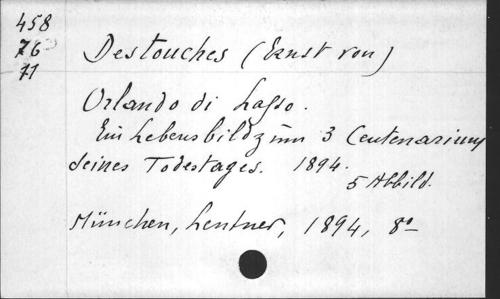 458
76
71
Destouches (Ernst von)
Orlando di Lasso.
Ein Lebensbild zum 3 Centenarium
seines Todestages. 1894.
5 Abbild.
München, Lentner, 1894, 8°